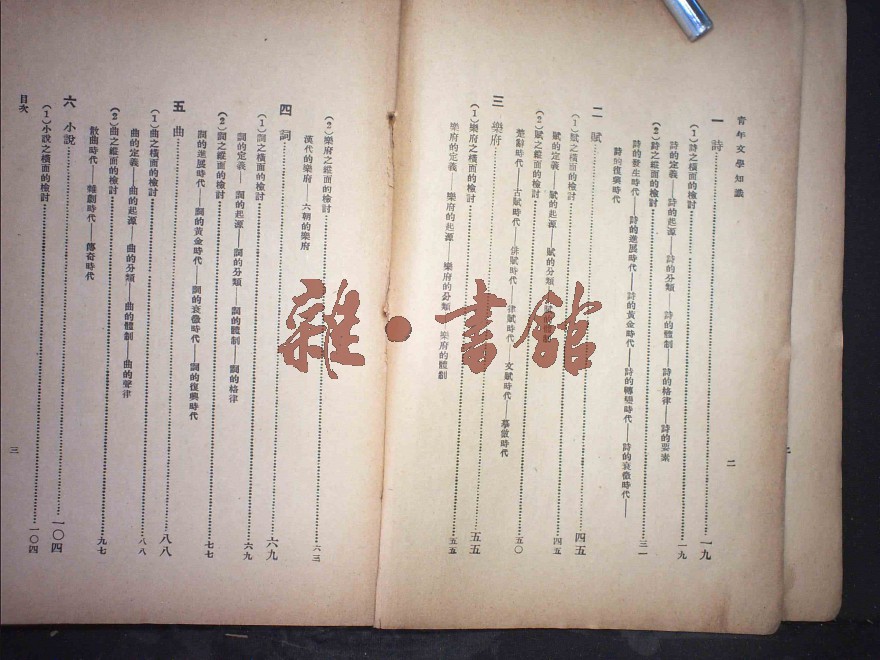 青年文學知識
二
一 詩……一九
(1)詩之橫面的檢討……一九
詩的定義——詩的起源——詩的分類——詩的體制——詩的格律——詩的要素
(2)詩之縱面的檢討……三一
詩的發生時代——詩的進展時代——詩的黃金時代——詩的轉變時代——詩的衰微時代——
詩的復興時代
二 賦……四五
(1)賦之橫面的檢討……四五
賦的定義——賦的起源——賦的分類
(2)賦之縱面的檢討……五〇
楚辭時代——古賦時代——俳賦時代——律賦時代——文賦時代——摹倣時代
三 樂府……五五
(1)樂府之橫面的檢討……五五
樂府的定義——樂府的起源——樂府的分類——樂府的體制
(2)樂府之縱面的檢討……六三
漢代的樂府——六朝的樂府
四 詞……六九
(1)詞之橫面的檢討……六九
詞的定義——詞的起源——詞的分類——詞的體制——詞的格律
(2)詞之縱面的檢討……七七
詞的進展時代——詞的黃金時代——詞的衰微時代——詞的復興時代
五 曲……八八
(1)曲之橫面的檢討……八八
曲的定義——曲的起源——曲的分類——曲的體制——曲的聲律
(2)曲之縱面的檢討……九七
散曲時代——雜劇時代——傳奇時代
六 小說……一〇四
(1)小說之橫面的檢討……一〇四
目次
三
雜·書館